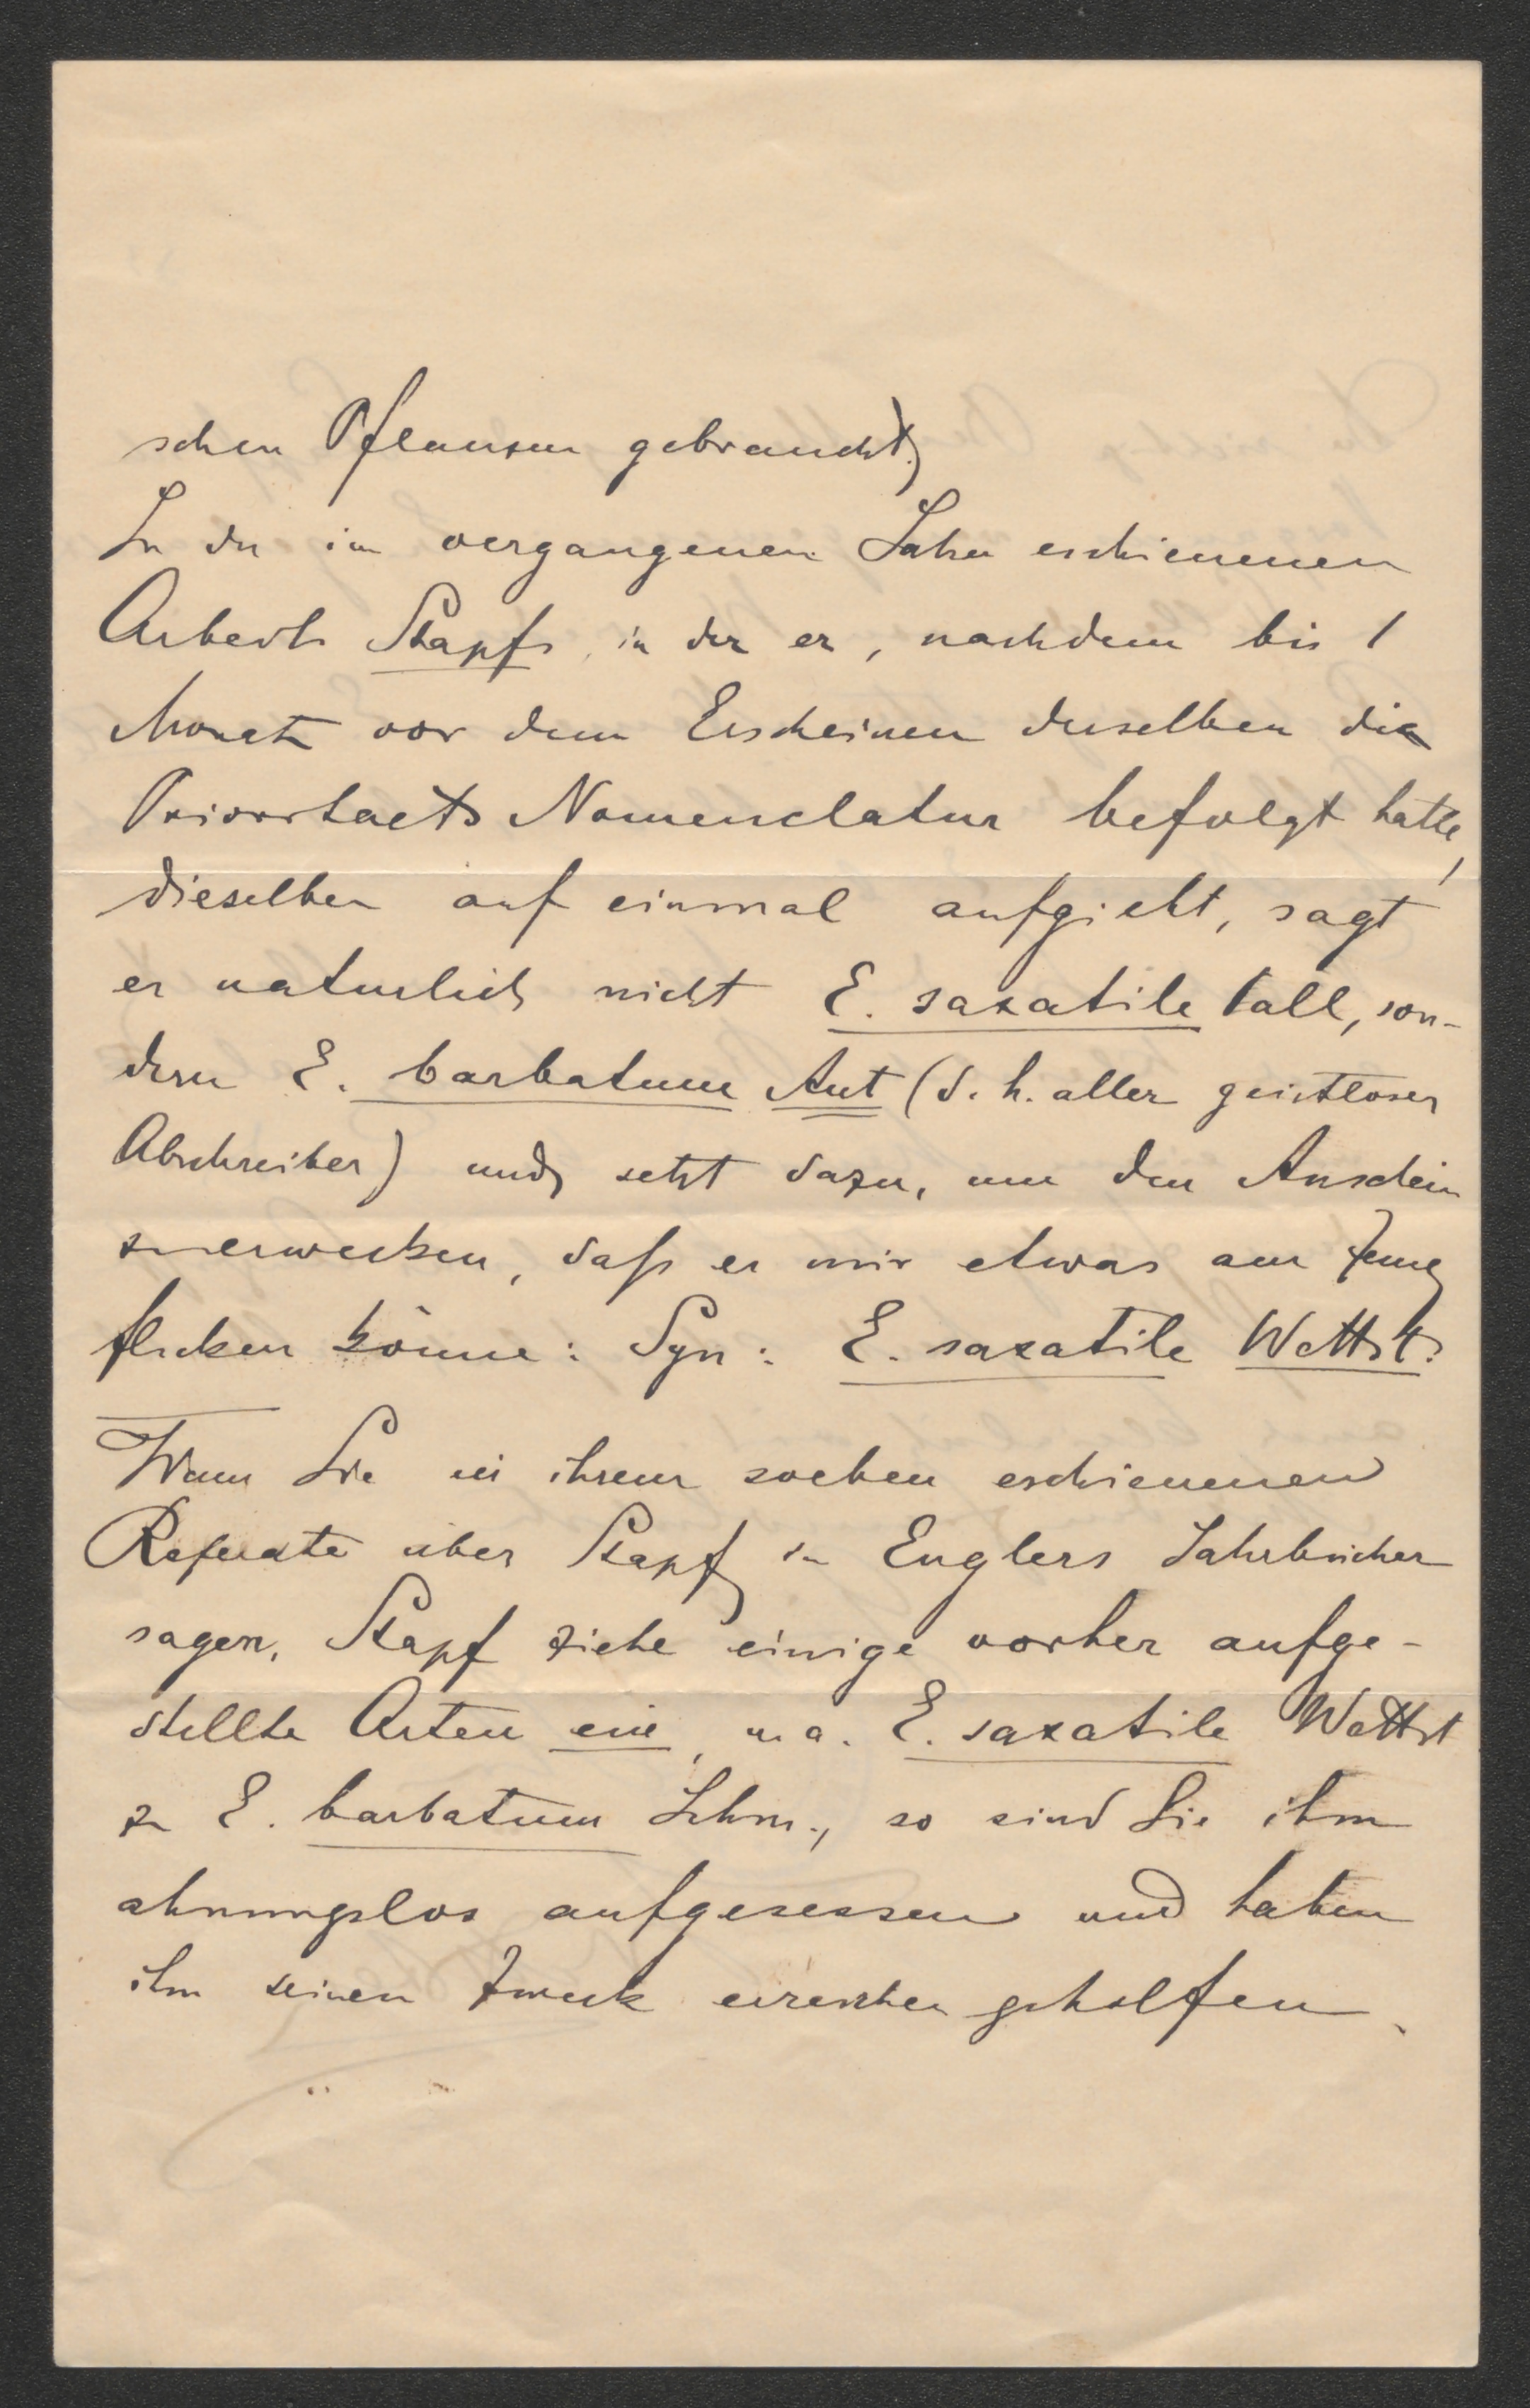 schen Pflanzen gebraucht.)
In der im vergangenen Jahre erschienenen
Arbeit Stapfs, in der er, nachdem bis 1
Monate vor dem Erscheinen derselben die
Prioritaets Nomenclatur befolgt hatte,
dieselben auf einmal aufgiebt, sagt
er naturlich nicht E. saxatile Pall, son-
dern E. barbatum Aut (d. h. aller geistloser
Abschreiber) und setzt dazu, um den Anschein
zu erwecken, daß er mir etwas am Zeug
flicken könne: Syn: E. saxatile Wettst.
Wenn Sie in ihrem soeben erschienenen
Referate über Stapf in Englers Jahrbücher
sagen, Stapf ziehe einige vorher aufge-
stellte Arten ein, u. a. E. saxatile Wettst
zu E. barbatum Schm., so sind Sie ihm
ahnungslos aufgesessen und haben
ihm seinen Zweck erreichen geholfen.